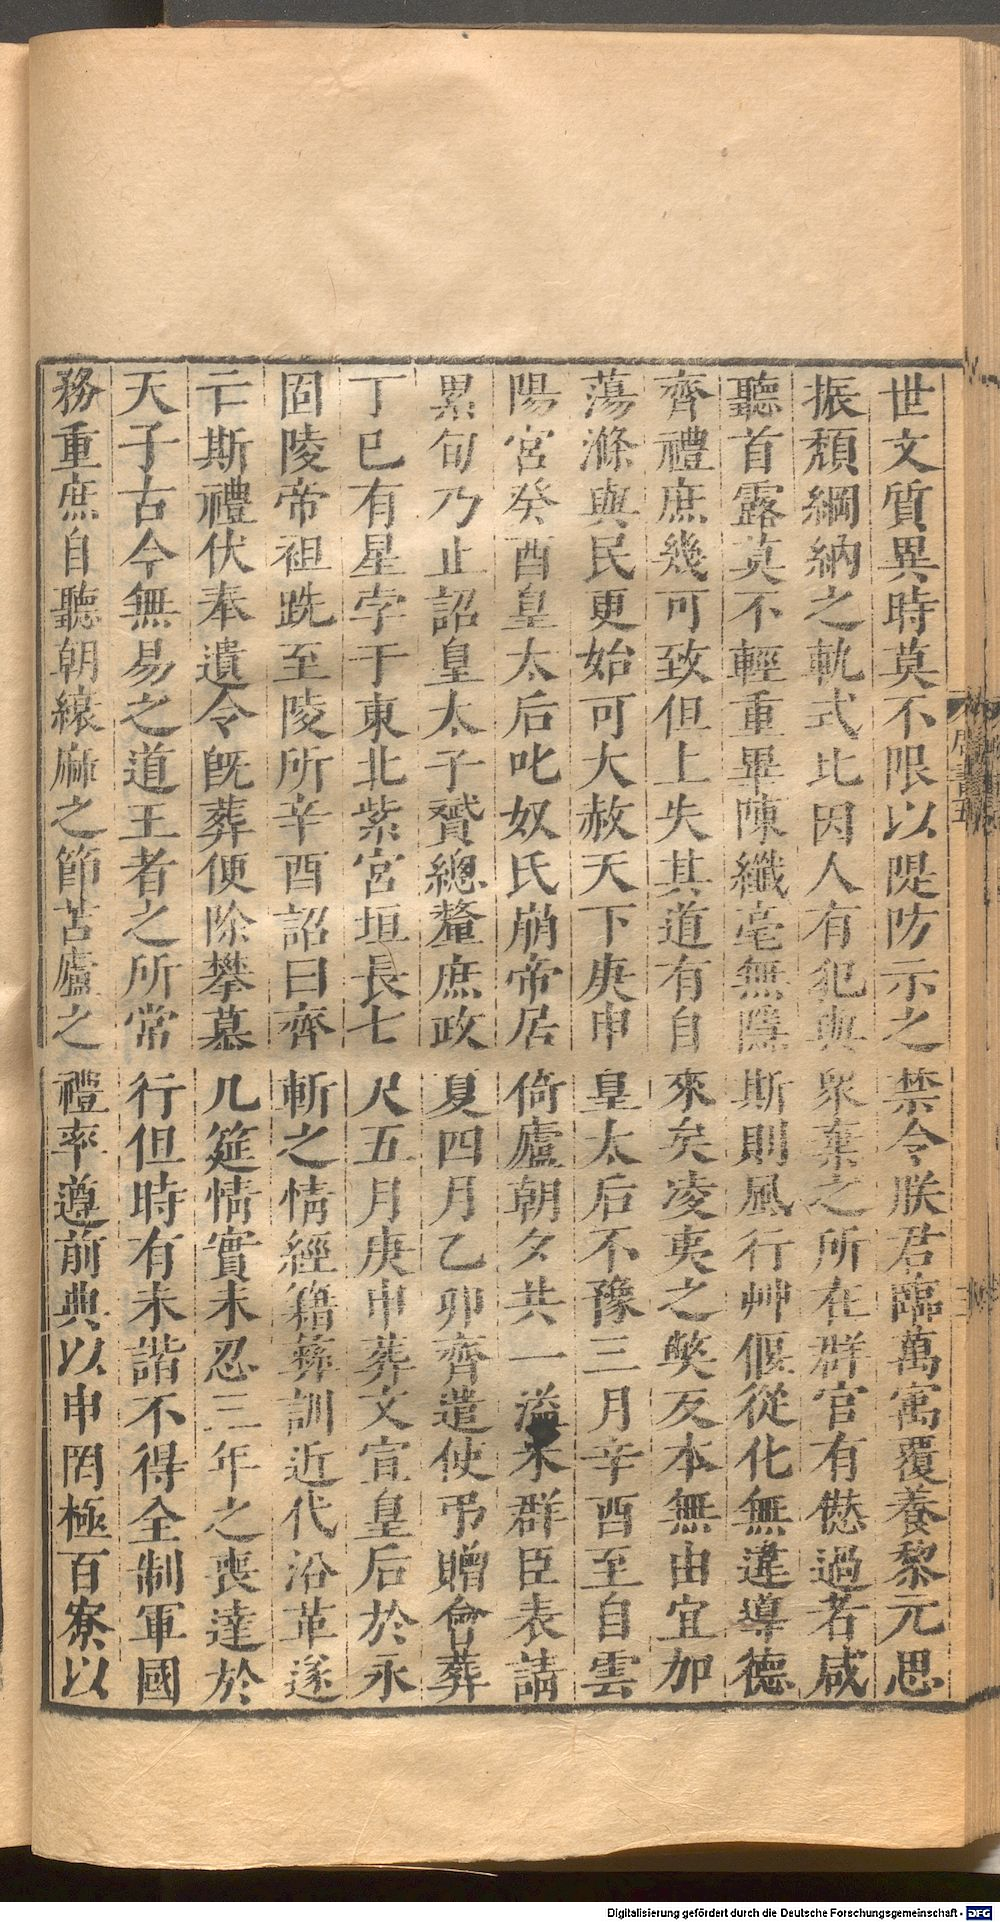 世文質異時莫不限以隄防示之禁令朕君臨萬寓覆養黎元思
振頹綱納之軌式比因人有犯與衆棄之所在群官有愆過若咸
聽首露莫不輕重畢陳纖毫無隱斯則風行艸偃從化無違導德
齊禮庶幾可致但上失其道有自來矣凌夷之獘反本無由宜加
蕩滌與民更始可大赦天下庚申皇太后不豫三月辛酉至自雲
陽宮癸酉皇太后叱奴氏崩帝居倚廬朝夕共一溢米群臣表請
累旬乃止詔皇太子贇總釐庶政夏四月乙卯齊遣使弔贈會葬
丁巳有星孛于東北紫宮垣長七尺五月庚申葬文宣皇后於永
固陵帝祖跣至陵所辛酉詔曰齊斬之情經籍彝訓近代沿革遂
亡斯禮伏奉遺令旣葬便除攀慕几筵情實未忍三年之喪達於
天子古今無易之道王者之所常行但時有未諧不得全制軍國
務重庶自聽朝縗麻之節苫廬之禮率遵前典以申罔極百寮以
周書五
Digitalisierung gefördert durch die Deutsche Forschungsgemeinschaft - DFG